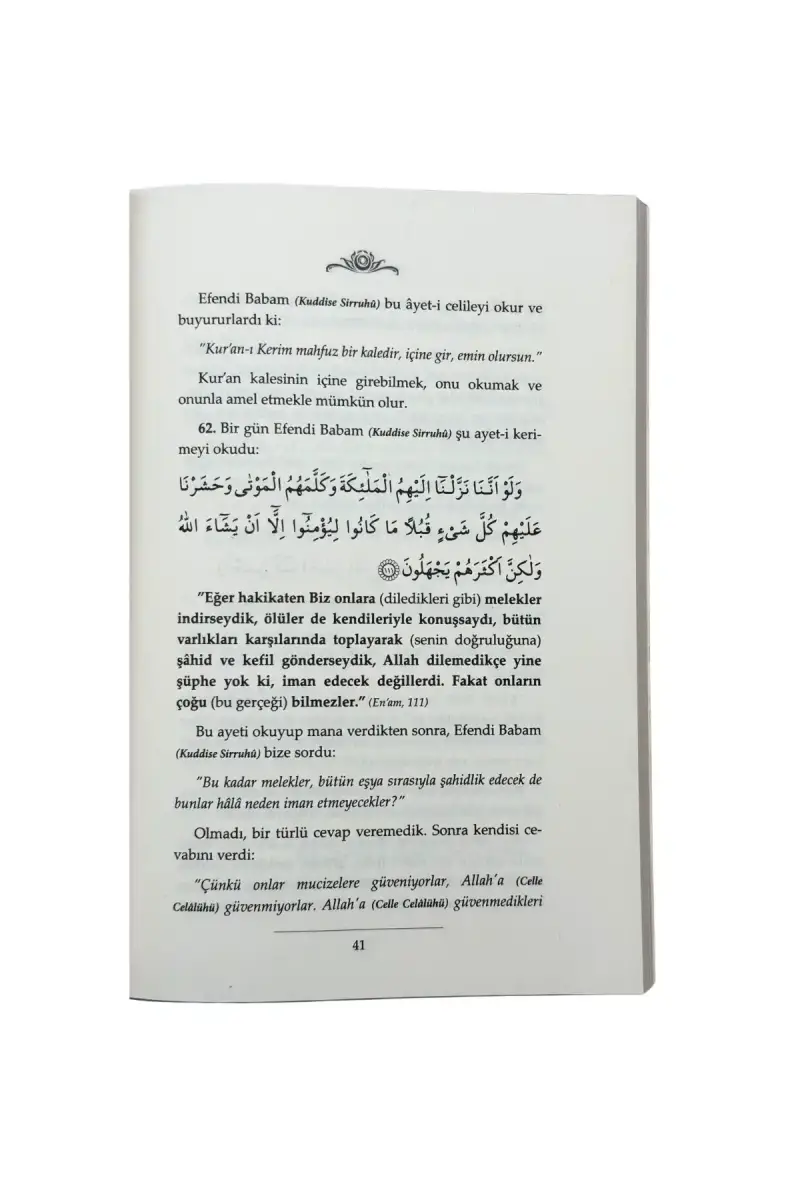 Efendi Babam (Kuddise Sirruhû) bu âyet-i celileyi okur ve
buyururlardı ki:
"Kur'an-ı Kerim mahfuz bir kaledir, içine gir, emin olursun."
Kur'an kalesinin içine girebilmek, onu okumak ve
onunla amel etmekle mümkün olur.
62. Bir gün Efendi Babam (Kuddise Sirruhû) şu ayet-i keri-
meyi okudu:
وَلَوْ اَنَّنَا نَزَّلْنَٓا اِلَيْهِمُ الْمَلٰٓئِكَةَ وَكَلَّمَهُمُ الْمَوْتٰى وَحَشَرْنَا
عَلَيْهِمْ كُلَّ شَىْءٍ قُبُلًا مَا كَانُوا لِيُؤْمِنُٓوا اِلَّٓا اَنْ يَشَٓاءَ اللّٰهُ
وَلٰكِنَّ اَكْثَرَهُمْ يَجْهَلُونَ ﴿١١١﴾
"Eğer hakikaten Biz onlara (diledikleri gibi) melekler
indirseydik, ölüler de kendileriyle konuşsaydı, bütün
varlıkları karşılarında toplayarak (senin doğruluğuna)
şâhid ve kefil gönderseydik, Allah dilemedikçe yine
şüphe yok ki, iman edecek değillerdi. Fakat onların
çoğu (bu gerçeği) bilmezler." (En'am, 111)
Bu ayeti okuyup mana verdikten sonra, Efendi Babam
(Kuddise Sirruhû) bize sordu:
"Bu kadar melekler, bütün eşya sırasıyla şahidlik edecek de
bunlar hâlâ neden iman etmeyecekler?"
Olmadı, bir türlü cevap veremedik. Sonra kendisi ce-
vabını verdi:
"Çünkü onlar mucizelere güveniyorlar, Allah'a (Celle
Celâlühü) güvenmiyorlar. Allah'a (Celle Celâlühü) güvenmedikleri
41